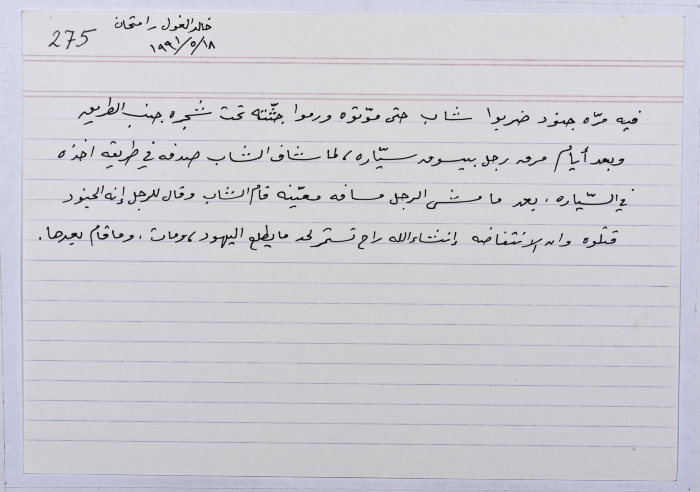 275
خالد الغول / امتحان
١٩٩١/٥/١٨
فيه مرّه جنود ضربوا شاب حتى موّتوه ورموا جثّته تحت شجره جنب الطريق
وبعد أيام مرق رجل بيسوق سيّاره، لما شاف الشاب صدفه في طريقه اخذه
في السّياره. بعد ما مشى الرجل مسافه معيّنه قام الشاب وقال للرجل إنه الجنود
قتلوه وان الانتفاضه إنشاء الله راح تستمر لحد ما يطلع اليهود، ومات. وما قام بعدها.